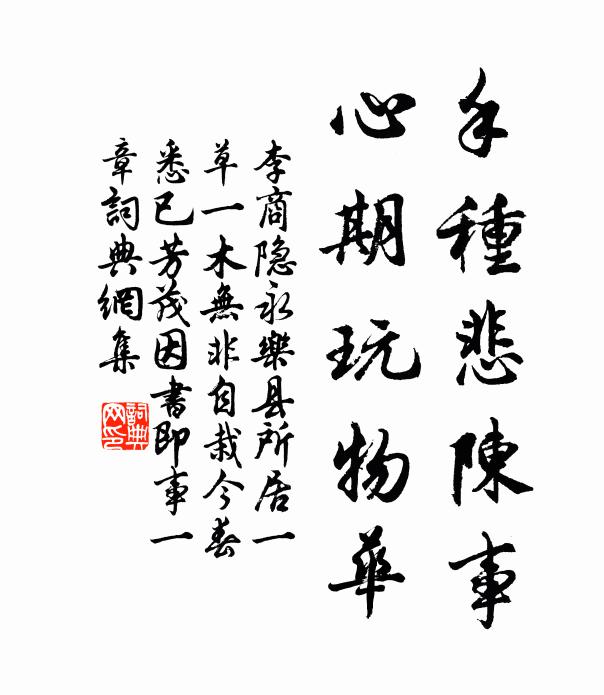 手種悲陳事
心期玩物華
李商隐永樂县所居一
草一木無非自栽今春
悉已芳茂因書即事一
章詞典網集
詞典
网印